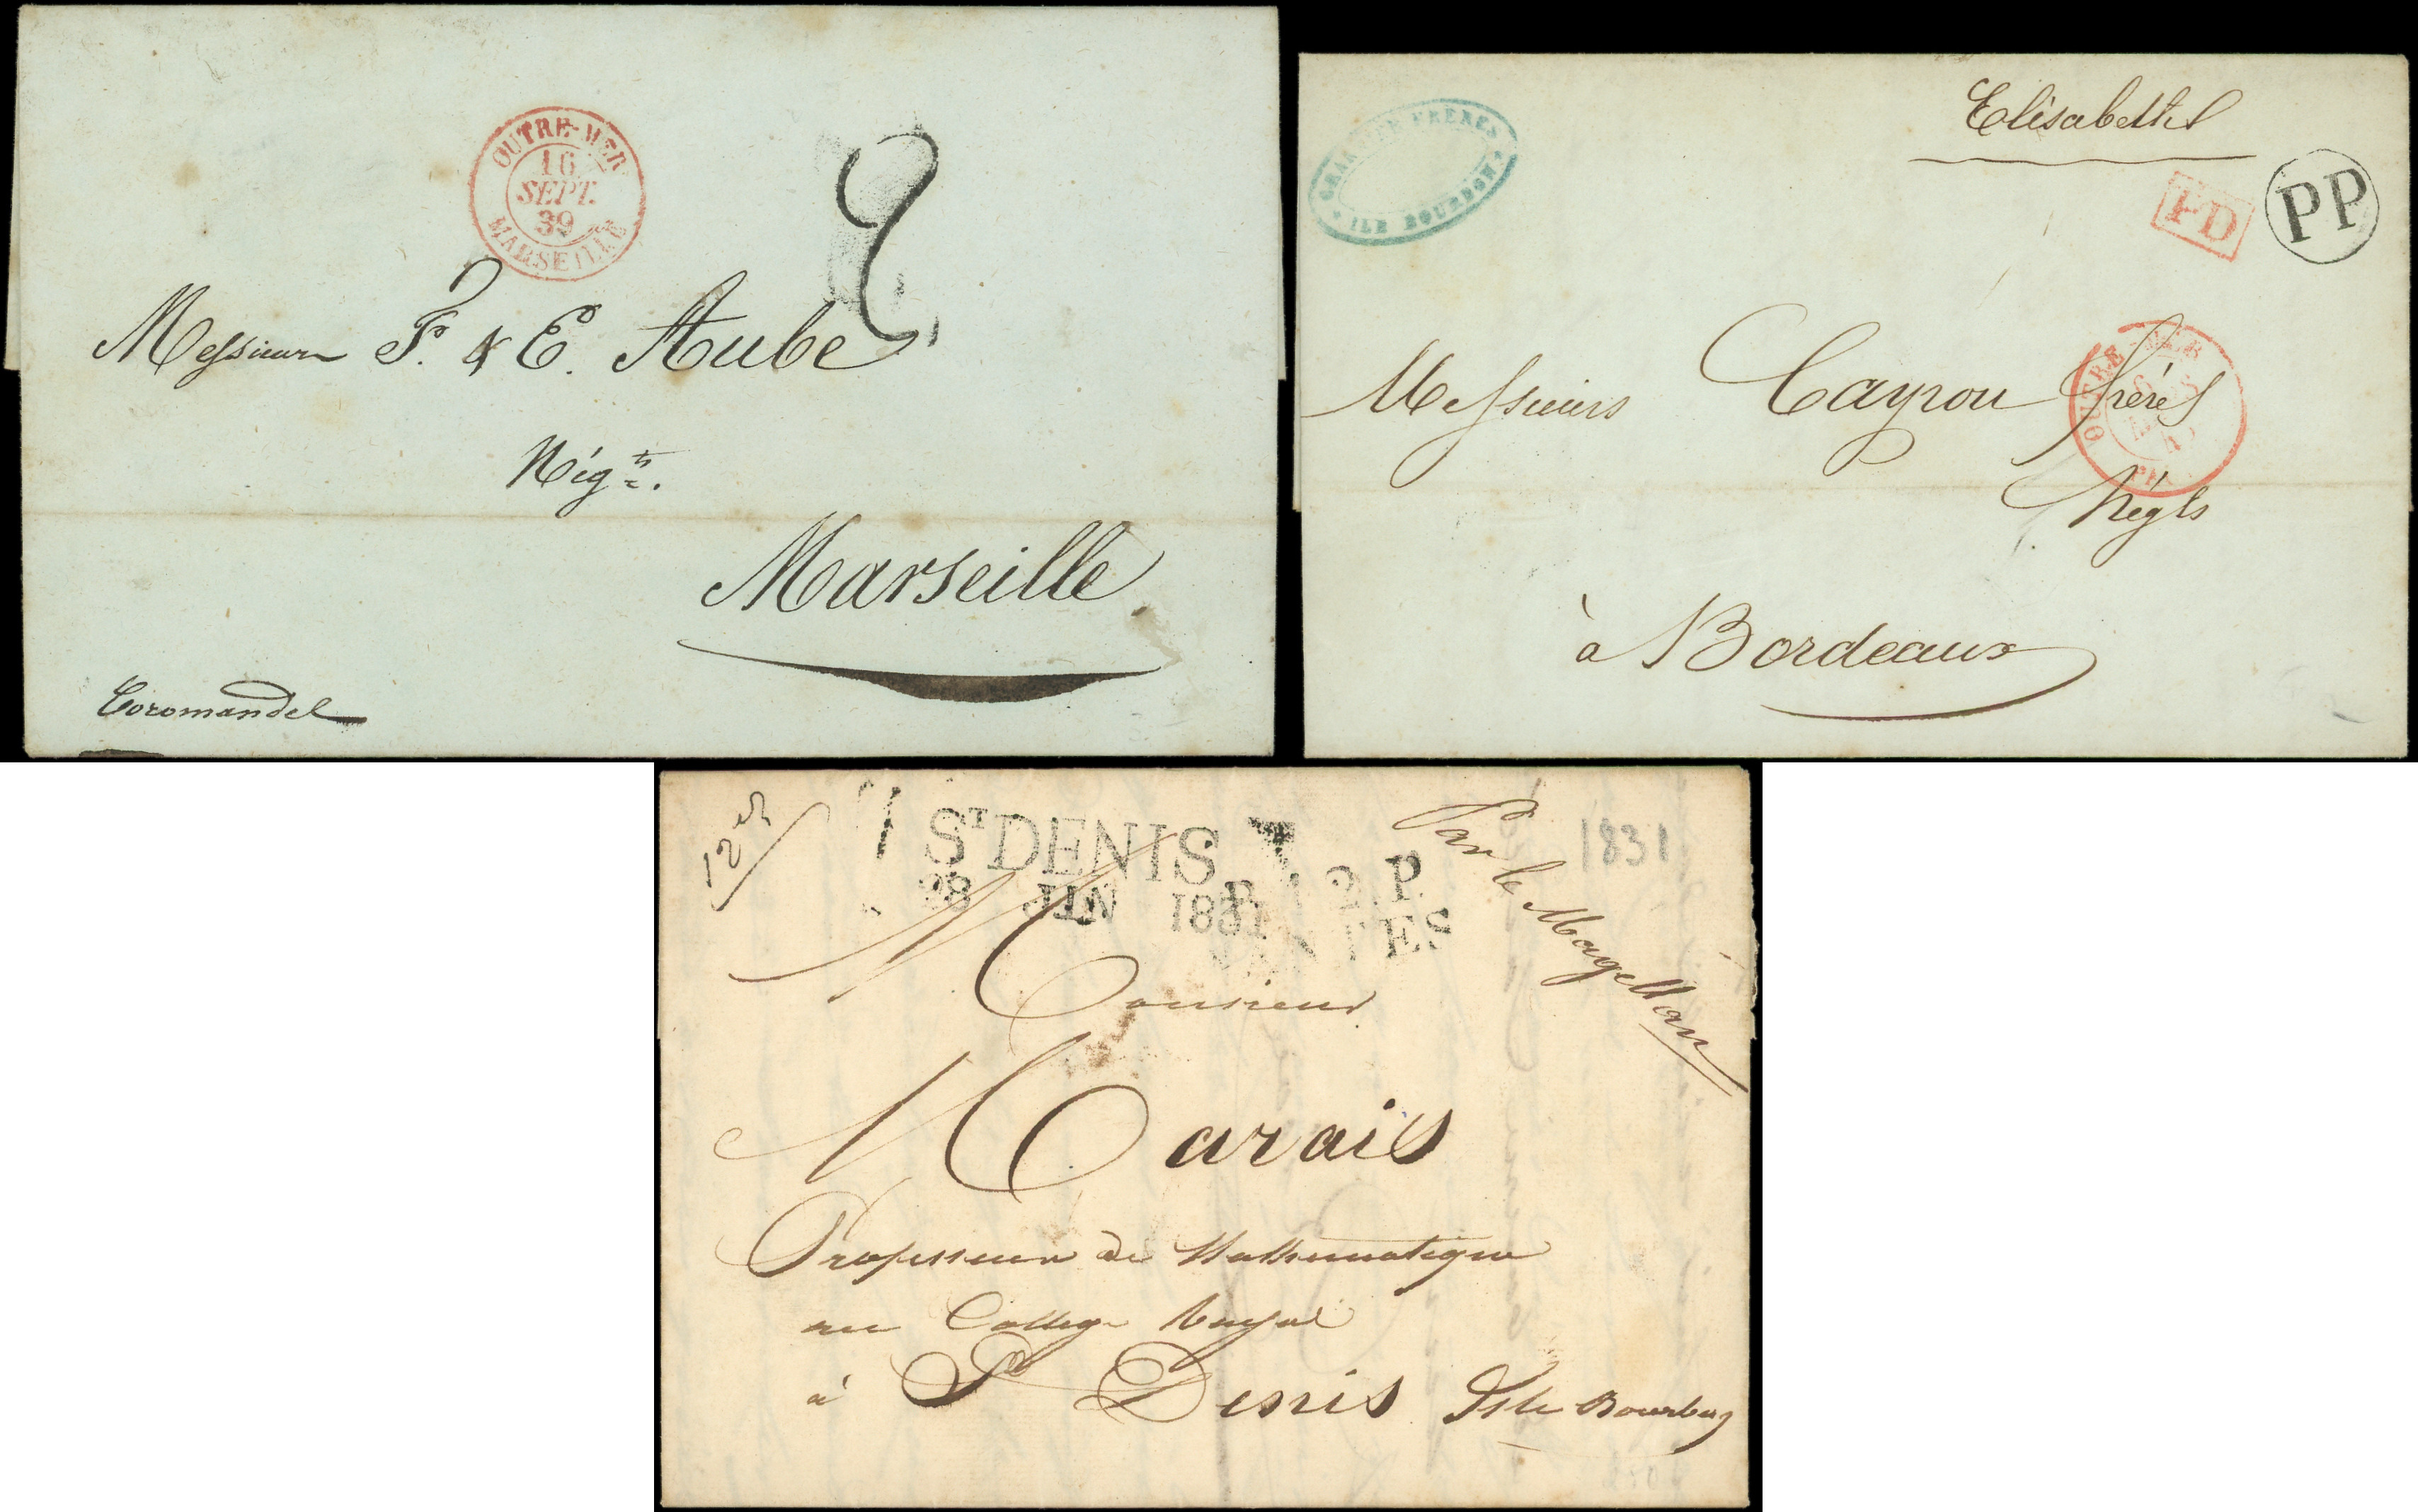 OUTRE-MER
16
SEPT.
39
MARSEILLE
2
Messieurs F. & E. Aube
Négts.
Marseille
Coromandel
FRÈRES
ILE BOURBON
Elisabeth
PD
PP
OUTRE-MER
Messieurs Cayrou frères
Négts
à Bordeaux
ST DENIS
28 JUIN 1831
P. 42. P.
NANTES
Par le Magellan
1831
Monsieur
Marais
Professeur de Mathematique
au College Royal
à St Denis Isle Bourbon